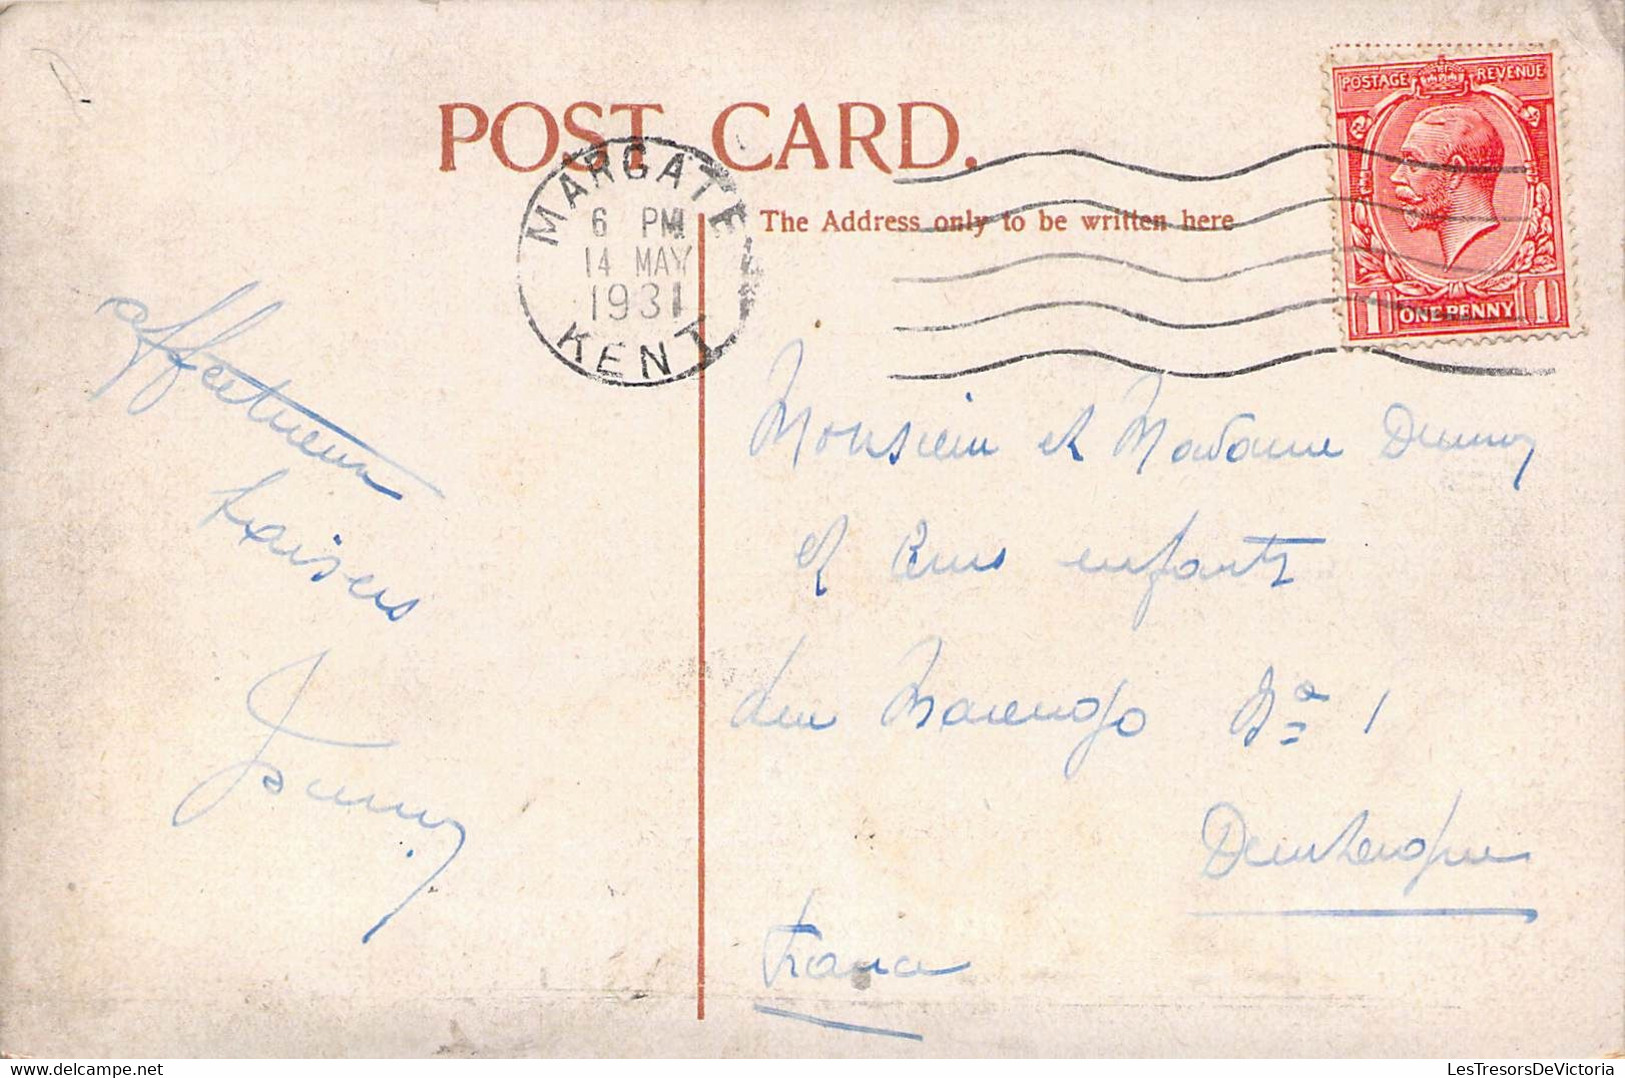 POST CARD.
MARGATE
6 PM
14 MAY
1931
KENT
The Address only to be written here
POSTAGE REVENUE
1 ONE PENNY 1
affectueux
baisers
Monsieur et Madame
et leurs enfants
rue Marengo Nº 1
Dunkerque
France
LesTresorsDeVictoria.com